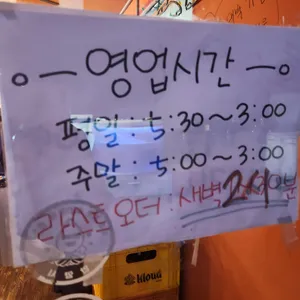 영업시간
평일 : 5:30~3:00
주말 : 5:00~3:00
라스트오더 : 새벽 2시
kloud